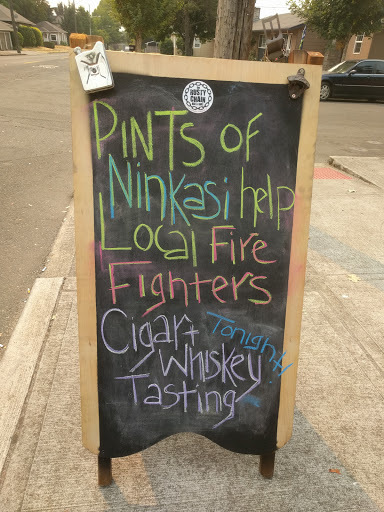 THE
RUSTY
CHAIN
PINTS of
Ninkasi help
Local Fire
Fighters
Cigar +
Tonight!
Whiskey
Tasting